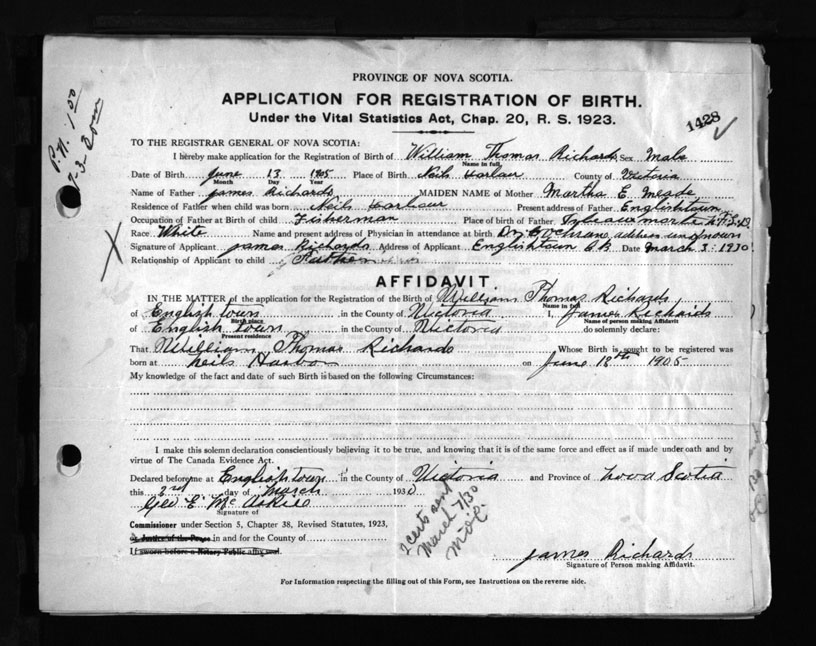 PROVINCE OF NOVA SCOTIA.
APPLICATION FOR REGISTRATION OF BIRTH.
Under the Vital Statistics Act, Chap. 20, R. S. 1923.
1428
P.N. 1 00
TO THE REGISTRAR GENERAL OF NOVA SCOTIA:
I hereby make application for the Registration of Birth of William Thomas Richards Sex Male
Name in full
Date of Birth June 13 1905 Place of Birth Neils Harbour County of Victoria
Month Day Year
Name of Father James Richards MAIDEN NAME of Mother Martha E. Meade
Residence of Father when child was born Neils Harbour Present address of Father Englishtown
Occupation of Father at Birth of child Fisherman Place of birth of Father
Race White Name and present address of Physician in attendance at birth Dr. Cochrane, address unknown
Signature of Applicant James Richards Address of Applicant Englishtown CB Date March 3. 1930.
Relationship of Applicant to child Father
AFFIDAVIT.
IN THE MATTER of the application for the Registration of Birth of William Thomas Richards,
Name in full
of English town in the County of Victoria I, James Richards
Birth place
Name of person making Affidavit
of English Town in the County of Victoria do solemnly declare:
Present residence
That William Thomas Richards Whose Birth is sought to be registered was
born at Neils Harbor on June 18th 1905
My knowledge of the fact and date of such Birth is based on the following Circumstances:
I make this solemn declaration conscientiously believing it to be true, and knowing that it is of the same force and effect as if made under oath and by
virtue of The Canada Evidence Act.
Declared before me at English town in the County of Victoria and Province of Nova Scotia
this 3rd day of March 1930
Geo E. McAskill
Signature of
Commissioner under Section 5, Chapter 38, Revised Statutes, 1923,
or Justice of the Peace in and for the County of
If sworn before a Notary Public affix seal.
2 certs sent
March 7/30
James Richards
Signature of Person making Affidavit.
For Information respecting the filling out of this Form, see Instructions on the reverse side.